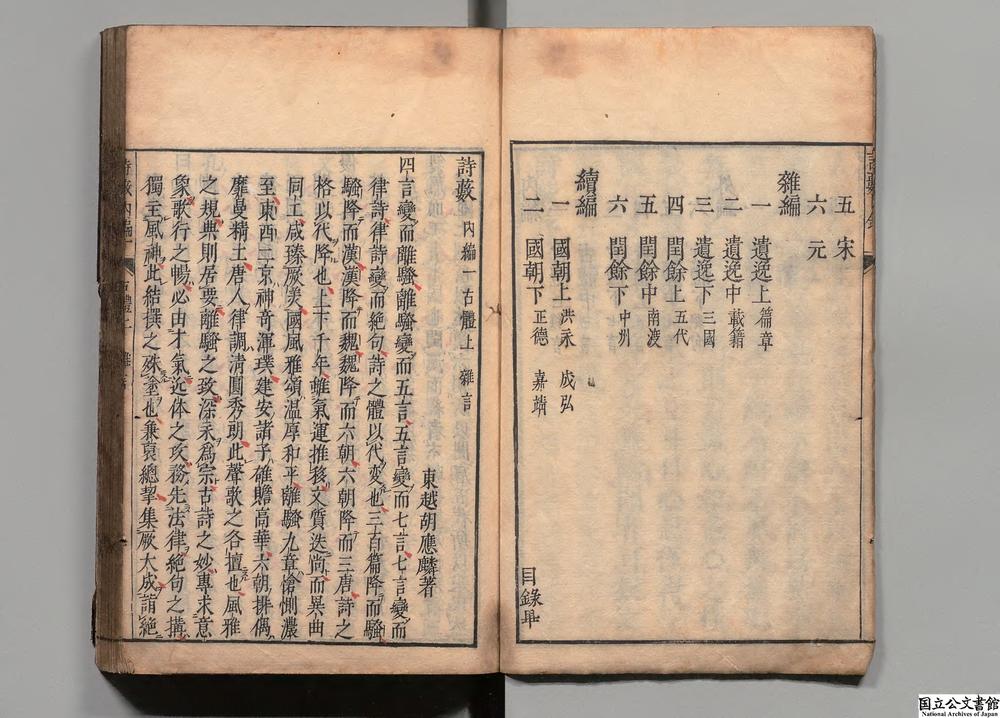 五　宋
六　元
雜編
一　遺逸上　篇章
二　遺逸中　載籍
三　遺逸下　三國
四　閏餘上　五代
五　閏餘中　南渡
六　閏餘下　中州
續編
一　國朝上　洪永　成弘
二　國朝下　正德　嘉靖
目錄畢
詩藪　內編一　古體上　雜言
東越胡應麟著
四言變而離騷離騷變而五言五言變而七言七言變而
律詩律詩變而絕句詩之體以代變也三百篇降而騷
騷降而漢漢降而魏魏降而六朝六朝降而三唐詩之
格以代降也上下千年雖氣運推移文質迭尚而異曲
同工咸臻厥美國風雅頌温厚和平離騷九章愴惻濃
至東西二京神奇渾璞建安諸子雄贍高華六朝排偶
靡曼精工唐人律調清圓秀朗此聲歌之各擅也風雅
之規典則居要離騷之致深永爲宗古詩之妙專求意
象歌行之暢必由才氣近体之攻務先法律絕句之搆
獨主風神此結撰之殊塗也兼裒總挈集厥大成詣絕
詩藪內編
古體上
国立公文書館
National Archives of Japan